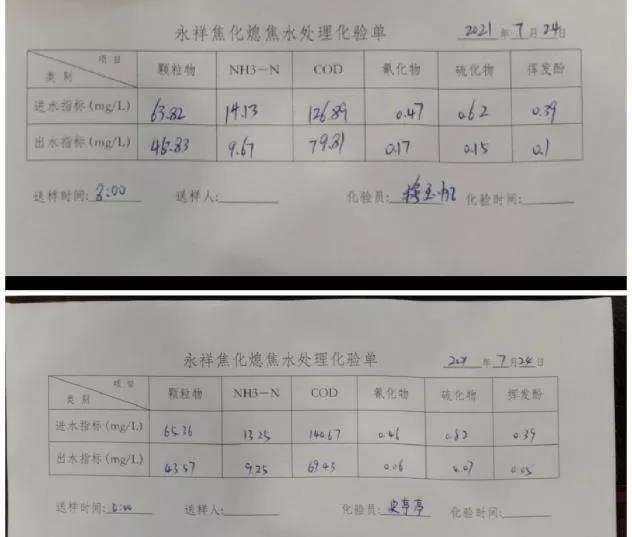 永祥焦化熄焦水处理化验单 2021年7月24日
项目 类别 颗粒物 NH3-N COD 氰化物 硫化物 挥发酚
进水指标(mg/L) 63.82 14.13 126.89 0.47 0.62 0.39
出水指标(mg/L) 45.83 9.67 79.81 0.17 0.15 0.1
送样时间: 8:00 送样人: 化验员: 化验时间:
永祥焦化熄焦水处理化验单 2021年7月24日
项目 类别 颗粒物 NH3-N COD 氰化物 硫化物 挥发酚
进水指标(mg/L) 65.36 13.25 140.67 0.46 0.82 0.39
出水指标(mg/L) 43.57 9.25 69.43 0.06 0.07 0.05
送样时间: 送样人: 化验员: 史亭亭 化验时间: